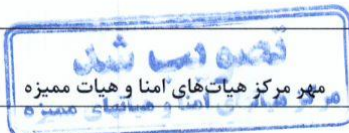 تصویب شد
مهر مرکز هیات‌های امنا و هیات ممیزه
مرکز هیاتهای امنا و هیاتهای ممیزه